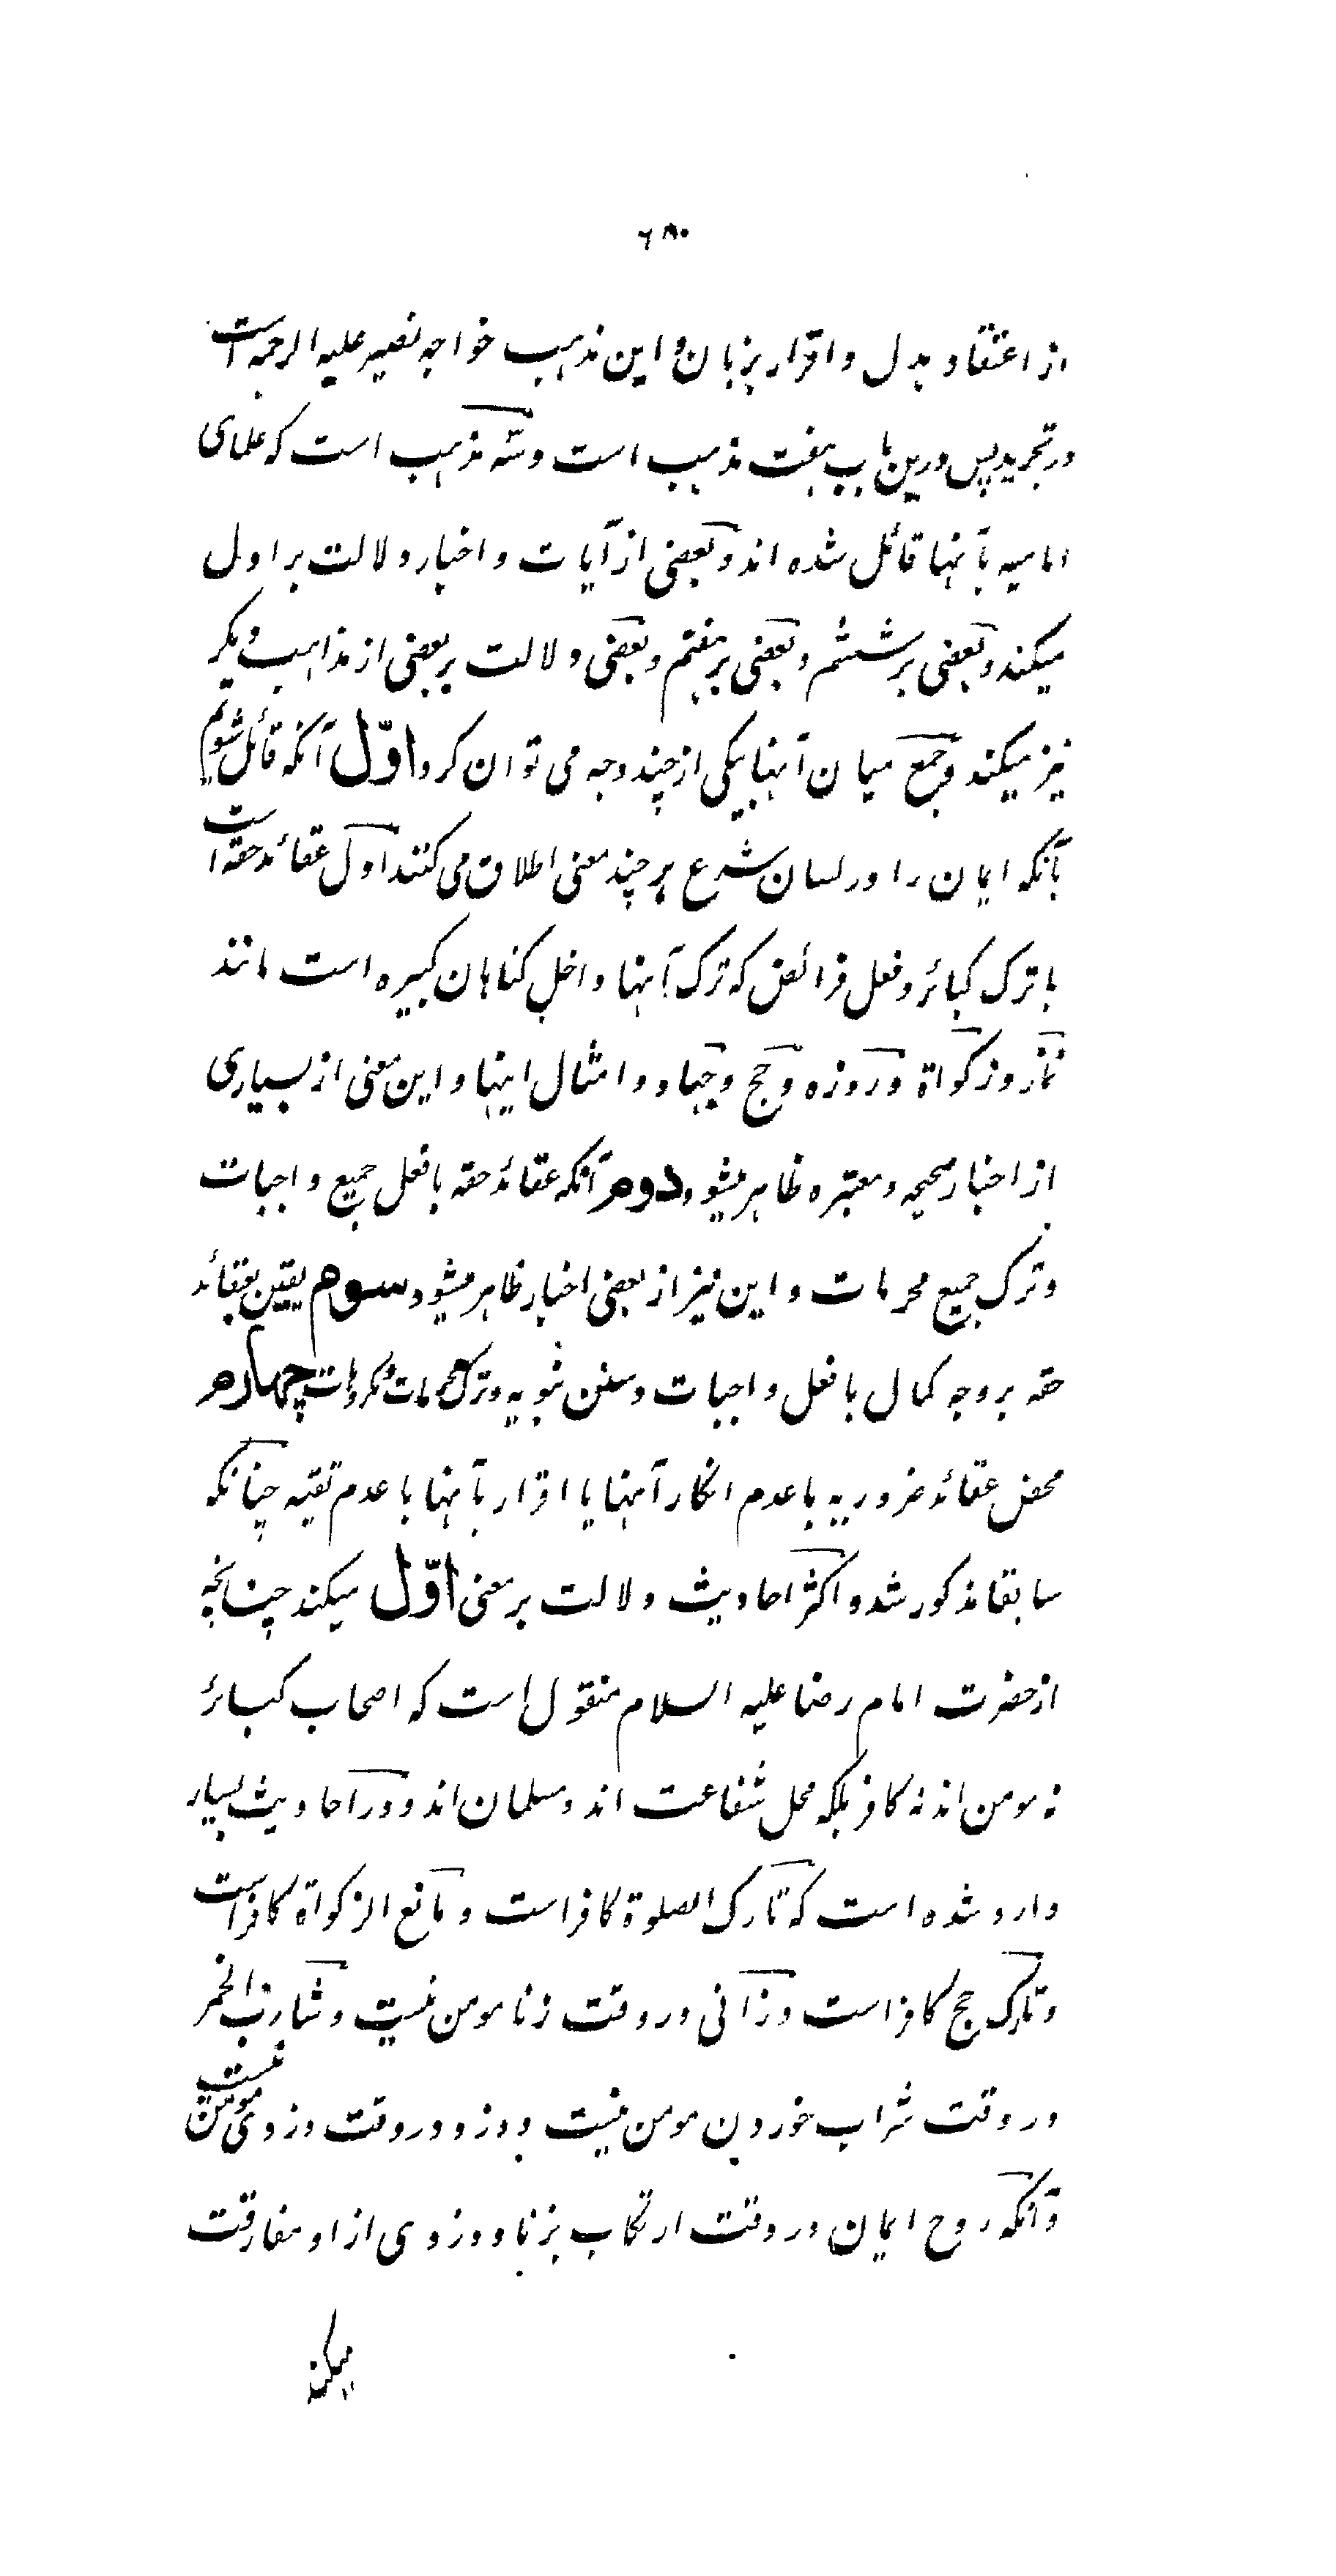 ۶۸۰
از اعتقاد بدل و اقرار بزبان و این مذهب خواجه نصیر علیه الرحمه است
در تجرید پس درین باب هفت مذهب است و سه مذهب است که علمای
امامیه بآنها قائل شده اند و بعضی از آیات و اخبار دلالت بر اول
میکند و بعضی بر ششم و بعضی بر هفتم و بعضی دلالت بر بعضی از مذاهب دیگر
نیز میکند و جمع میان آنها بیکی از چند وجه می توان کرد اوّل آنکه قائل شویم
بآنکه ایمان را در لسان شرع بر چند معنی اطلاق می کنند اول عقائد حقه است
با ترک کبائر و فعل فرائض که ترک آنها داخل گناهان کبیره است مانند
نماز و زکواة و روزه و حج و جهاد و امثال اینها و این معنی از بسیاری
از اخبار صحیحه و معتبره ظاهر میشود دوم آنکه عقائد حقه با فعل جمیع واجبات
و ترک جمیع محرمات و این نیز از بعضی اخبار ظاهر میشود سوم یقین بعقائد
حقه بر وجه کمال با فعل واجبات و سنن نبویه و ترک محرمات و مکروهات چهارم
محض عقائد ضروریه با عدم انکار آنها یا اقرار بآنها با عدم تقیه چنانکه
سابقا مذکور شد و اکثر احادیث دلالت بر معنی اوّل میکند چنانچه
از حضرت امام رضا علیه السلام منقول است که اصحاب کبائر
نه مومن اند نه کافر بلکه محل شفاعت اند و مسلمان اند و در احادیث بسیار
وارد شده است که تارک الصلوة کافر است و مانع الزکواة کافر است
و تارک حج کافر است و زانی در وقت زنا مومن نیست و شارب الخمر
در وقت شراب خوردن مومن نیست و دزد در وقت دزدی مومن نیست
و آنکه روح ایمان در وقت ارتکاب بزنا و دزدی از او مفارقت
میکند